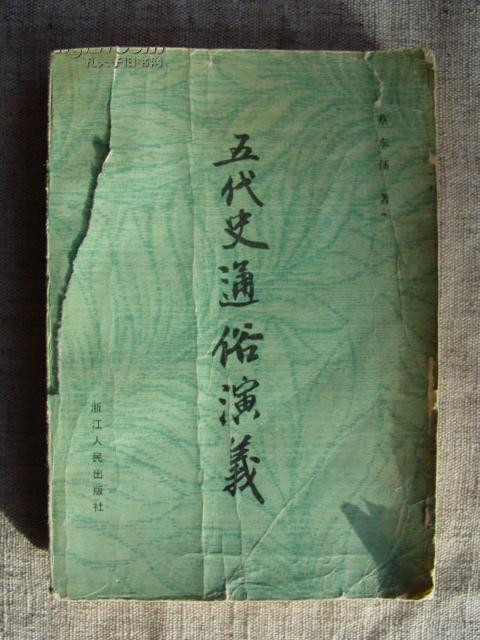 蔡东藩 著
五代史通俗演義
浙江人民出版社
孔夫子旧书网